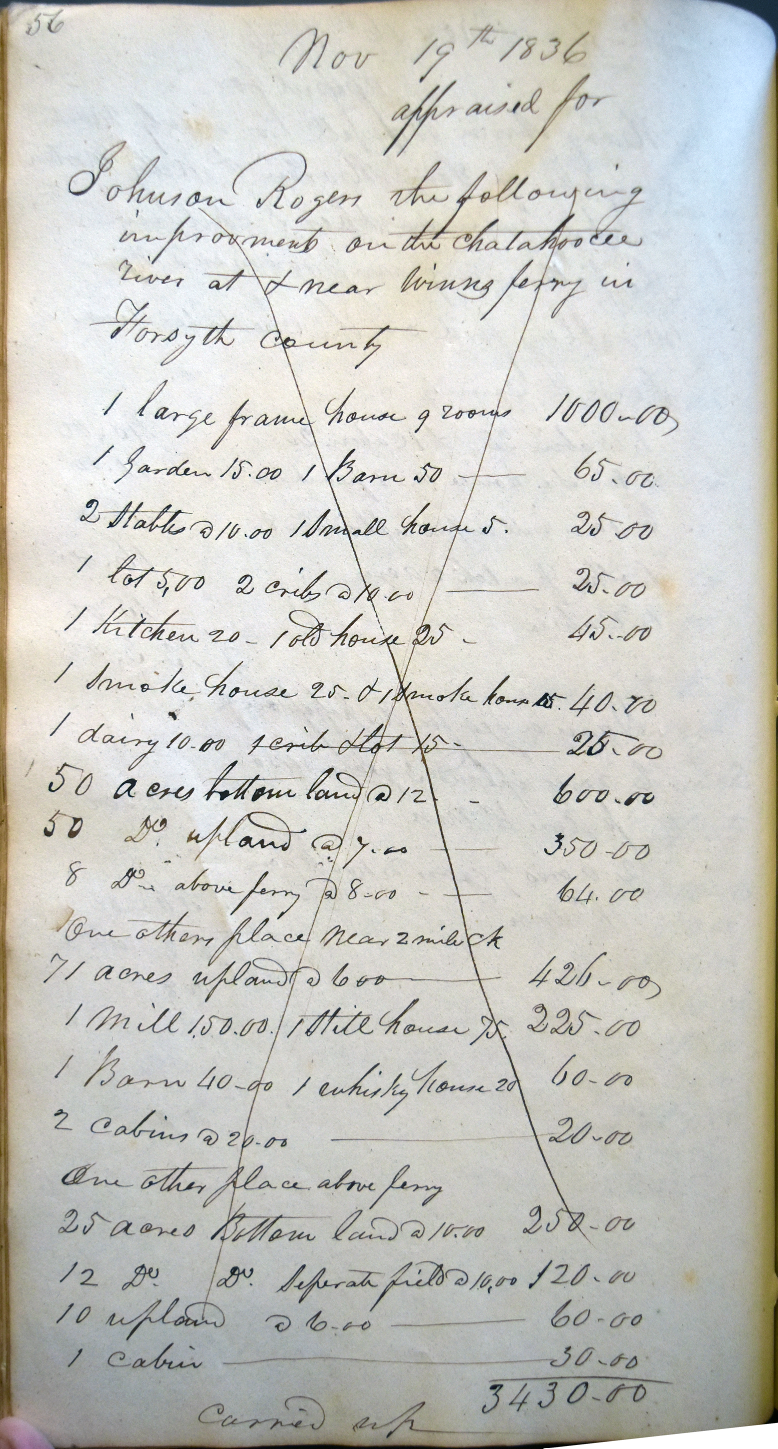 56
Nov 19th 1836
appraised for
Johnson Rogers the following
improvments on the chatahoocee
river at & near Winns ferry in
Forsyth county
1 large frame house 9 rooms 1000-00
1 Garden 15.00 1 Barn 50 — 65-00
2 Stables @ 10.00 1 Small house 5. 25-00
1 lot 5,00 2 cribs @ 10.00 — 25-00
1 Kitchen 20 - 1 old house 25 - 45-00
1 Smoke house 25 - & 1 Smoke house 15. 40-00
1 dairy 10.00 1 crib & lot 15 - — 25-00
50 acres bottom land @ 12. - 600-00
50 Do. upland @ 7.00 — 350-00
8 Do. above ferry @ 8-00 - — 64.00
One others place near 2 mile ck
71 acres upland @ 600 — 426-00
1 Mill 150.00. 1 Still house 75. 225-00
1 Barn 40-00 1 whisky house 20 60-00
2 cabins @ 20-00 — 20-00
One other place above ferry
25 acres Bottom land @ 10.00 250-00
12 Do. Do. Seperate field @ 10,00 120-00
10 upland @ 6-00 — 60-00
1 cabin — 30-00
3430-00
carried up